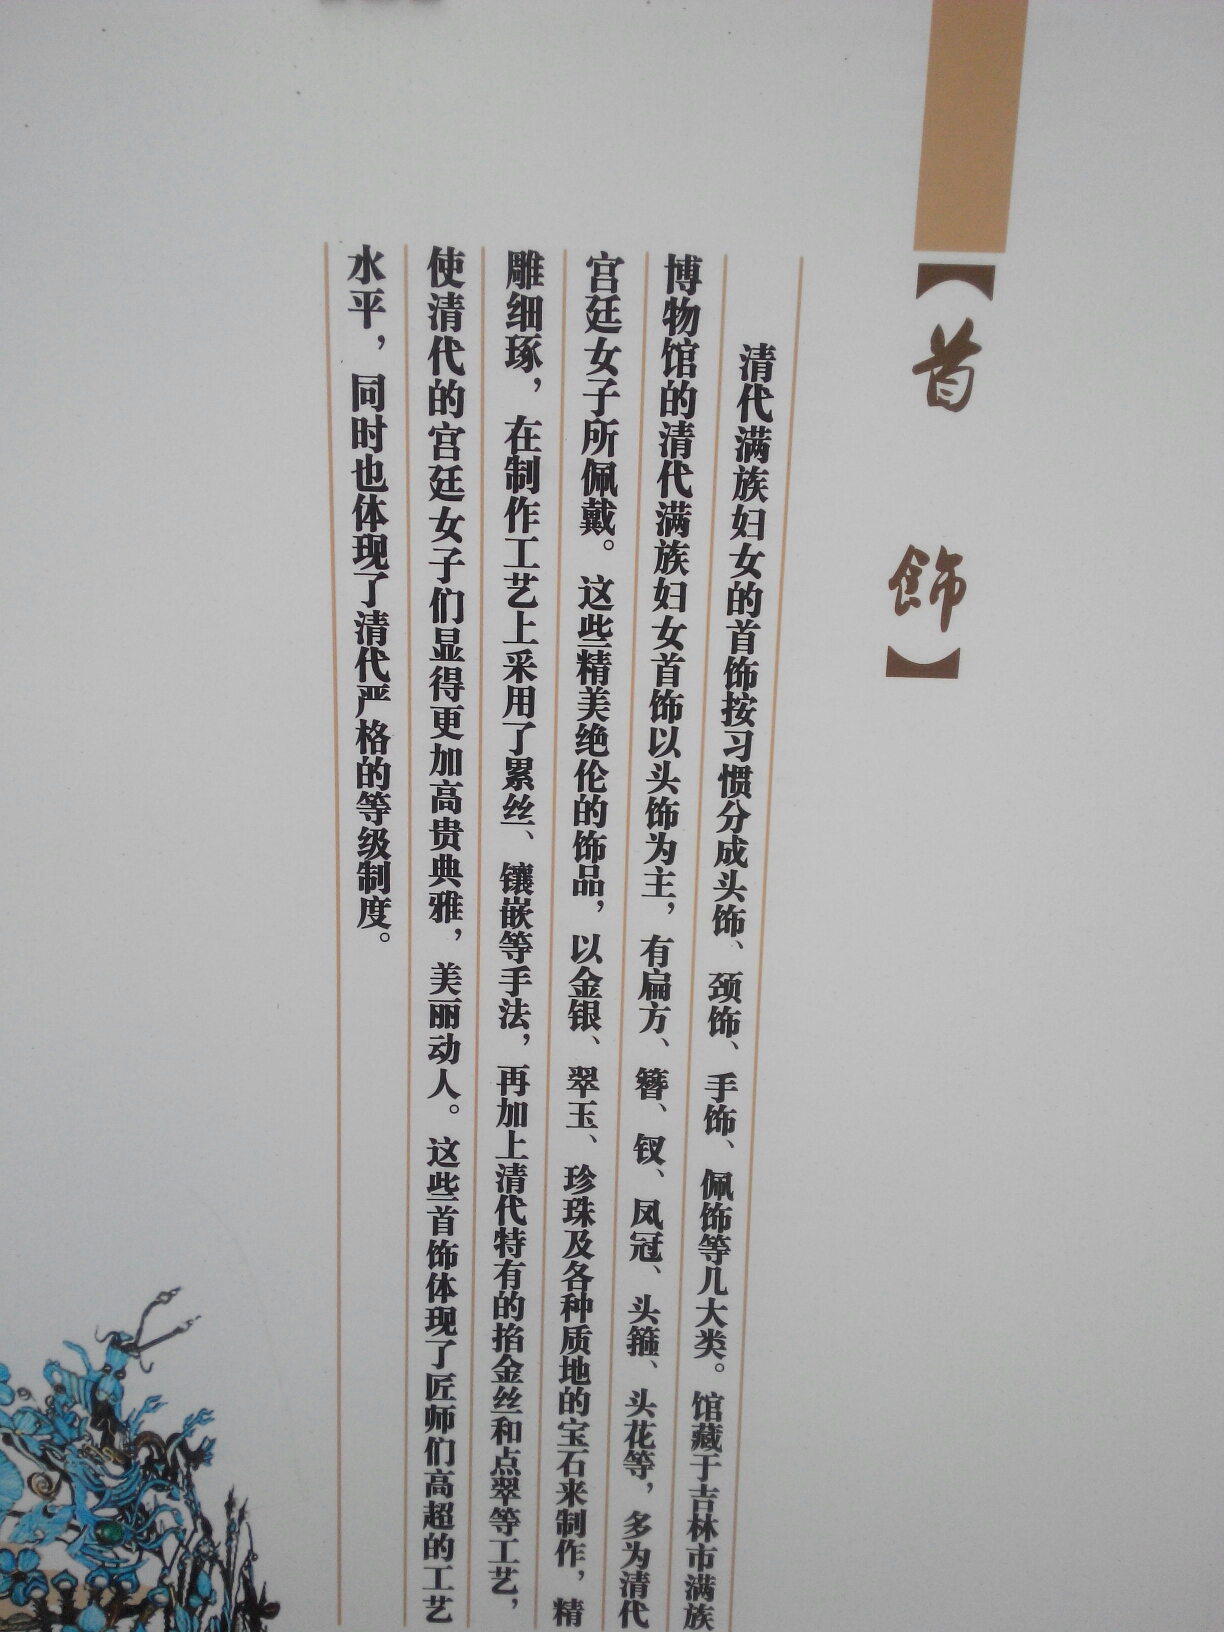 【首饰】
清代满族妇女的首饰按习惯分成头饰、颈饰、手饰、佩饰等几大类。馆藏于吉林市满族
博物馆的清代满族妇女首饰以头饰为主，有扁方、簪、钗、凤冠、头箍、头花等，多为清代
宫廷女子所佩戴。这些精美绝伦的饰品，以金银、翠玉、珍珠及各种质地的宝石来制作，精
雕细琢，在制作工艺上采用了累丝、镶嵌等手法，再加上清代特有的掐金丝和点翠等工艺，
使清代的宫廷女子们显得更加高贵典雅，美丽动人。这些首饰体现了匠师们高超的工艺
水平，同时也体现了清代严格的等级制度。